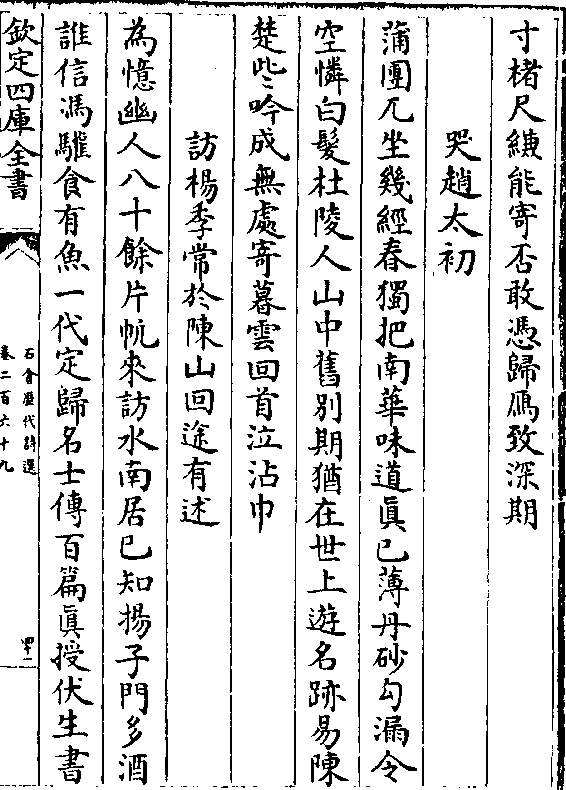 寸楮尺縑能寄否敢憑歸鴈致深期
哭趙太初
蒲團兀坐幾經春獨把南華味道眞已薄丹砂勾漏令
空憐白髮杜陵人山中舊別期猶在世上遊名跡易陳
楚些吟成無處寄暮雲回首泣沾巾
訪楊季常於陳山回途有述
為憶幽人八十餘片帆來訪水南居已知揚子門多酒
誰信馮驩食有魚一代定歸名士傳百篇眞授伏生書
欽定四庫全書
石倉歷代詩選
卷二百六十九
四十二